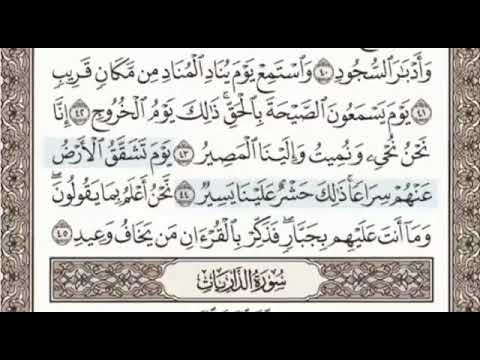 وَأَدْبَٰرَ ٱلسُّجُودِ ٤٠ وَٱسْتَمِعْ يَوْمَ يُنَادِ ٱلْمُنَادِ مِن مَّكَانٍ قَرِيبٍ
٤١ يَوْمَ يَسْمَعُونَ ٱلصَّيْحَةَ بِٱلْحَقِّ ۚ ذَٰلِكَ يَوْمُ ٱلْخُرُوجِ ٤٢ إِنَّا
نَحْنُ نُحْىِۦ وَنُمِيتُ وَإِلَيْنَا ٱلْمَصِيرُ ٤٣ يَوْمَ تَشَقَّقُ ٱلْأَرْضُ
عَنْهُمْ سِرَاعًا ۚ ذَٰلِكَ حَشْرٌ عَلَيْنَا يَسِيرٌ ٤٤ نَّحْنُ أَعْلَمُ بِمَا يَقُولُونَ ۖ
وَمَآ أَنتَ عَلَيْهِم بِجَبَّارٍ ۖ فَذَكِّرْ بِٱلْقُرْءَانِ مَن يَخَافُ وَعِيدِ ٤٥
سُورَةُ الذَّارِيَاتِ